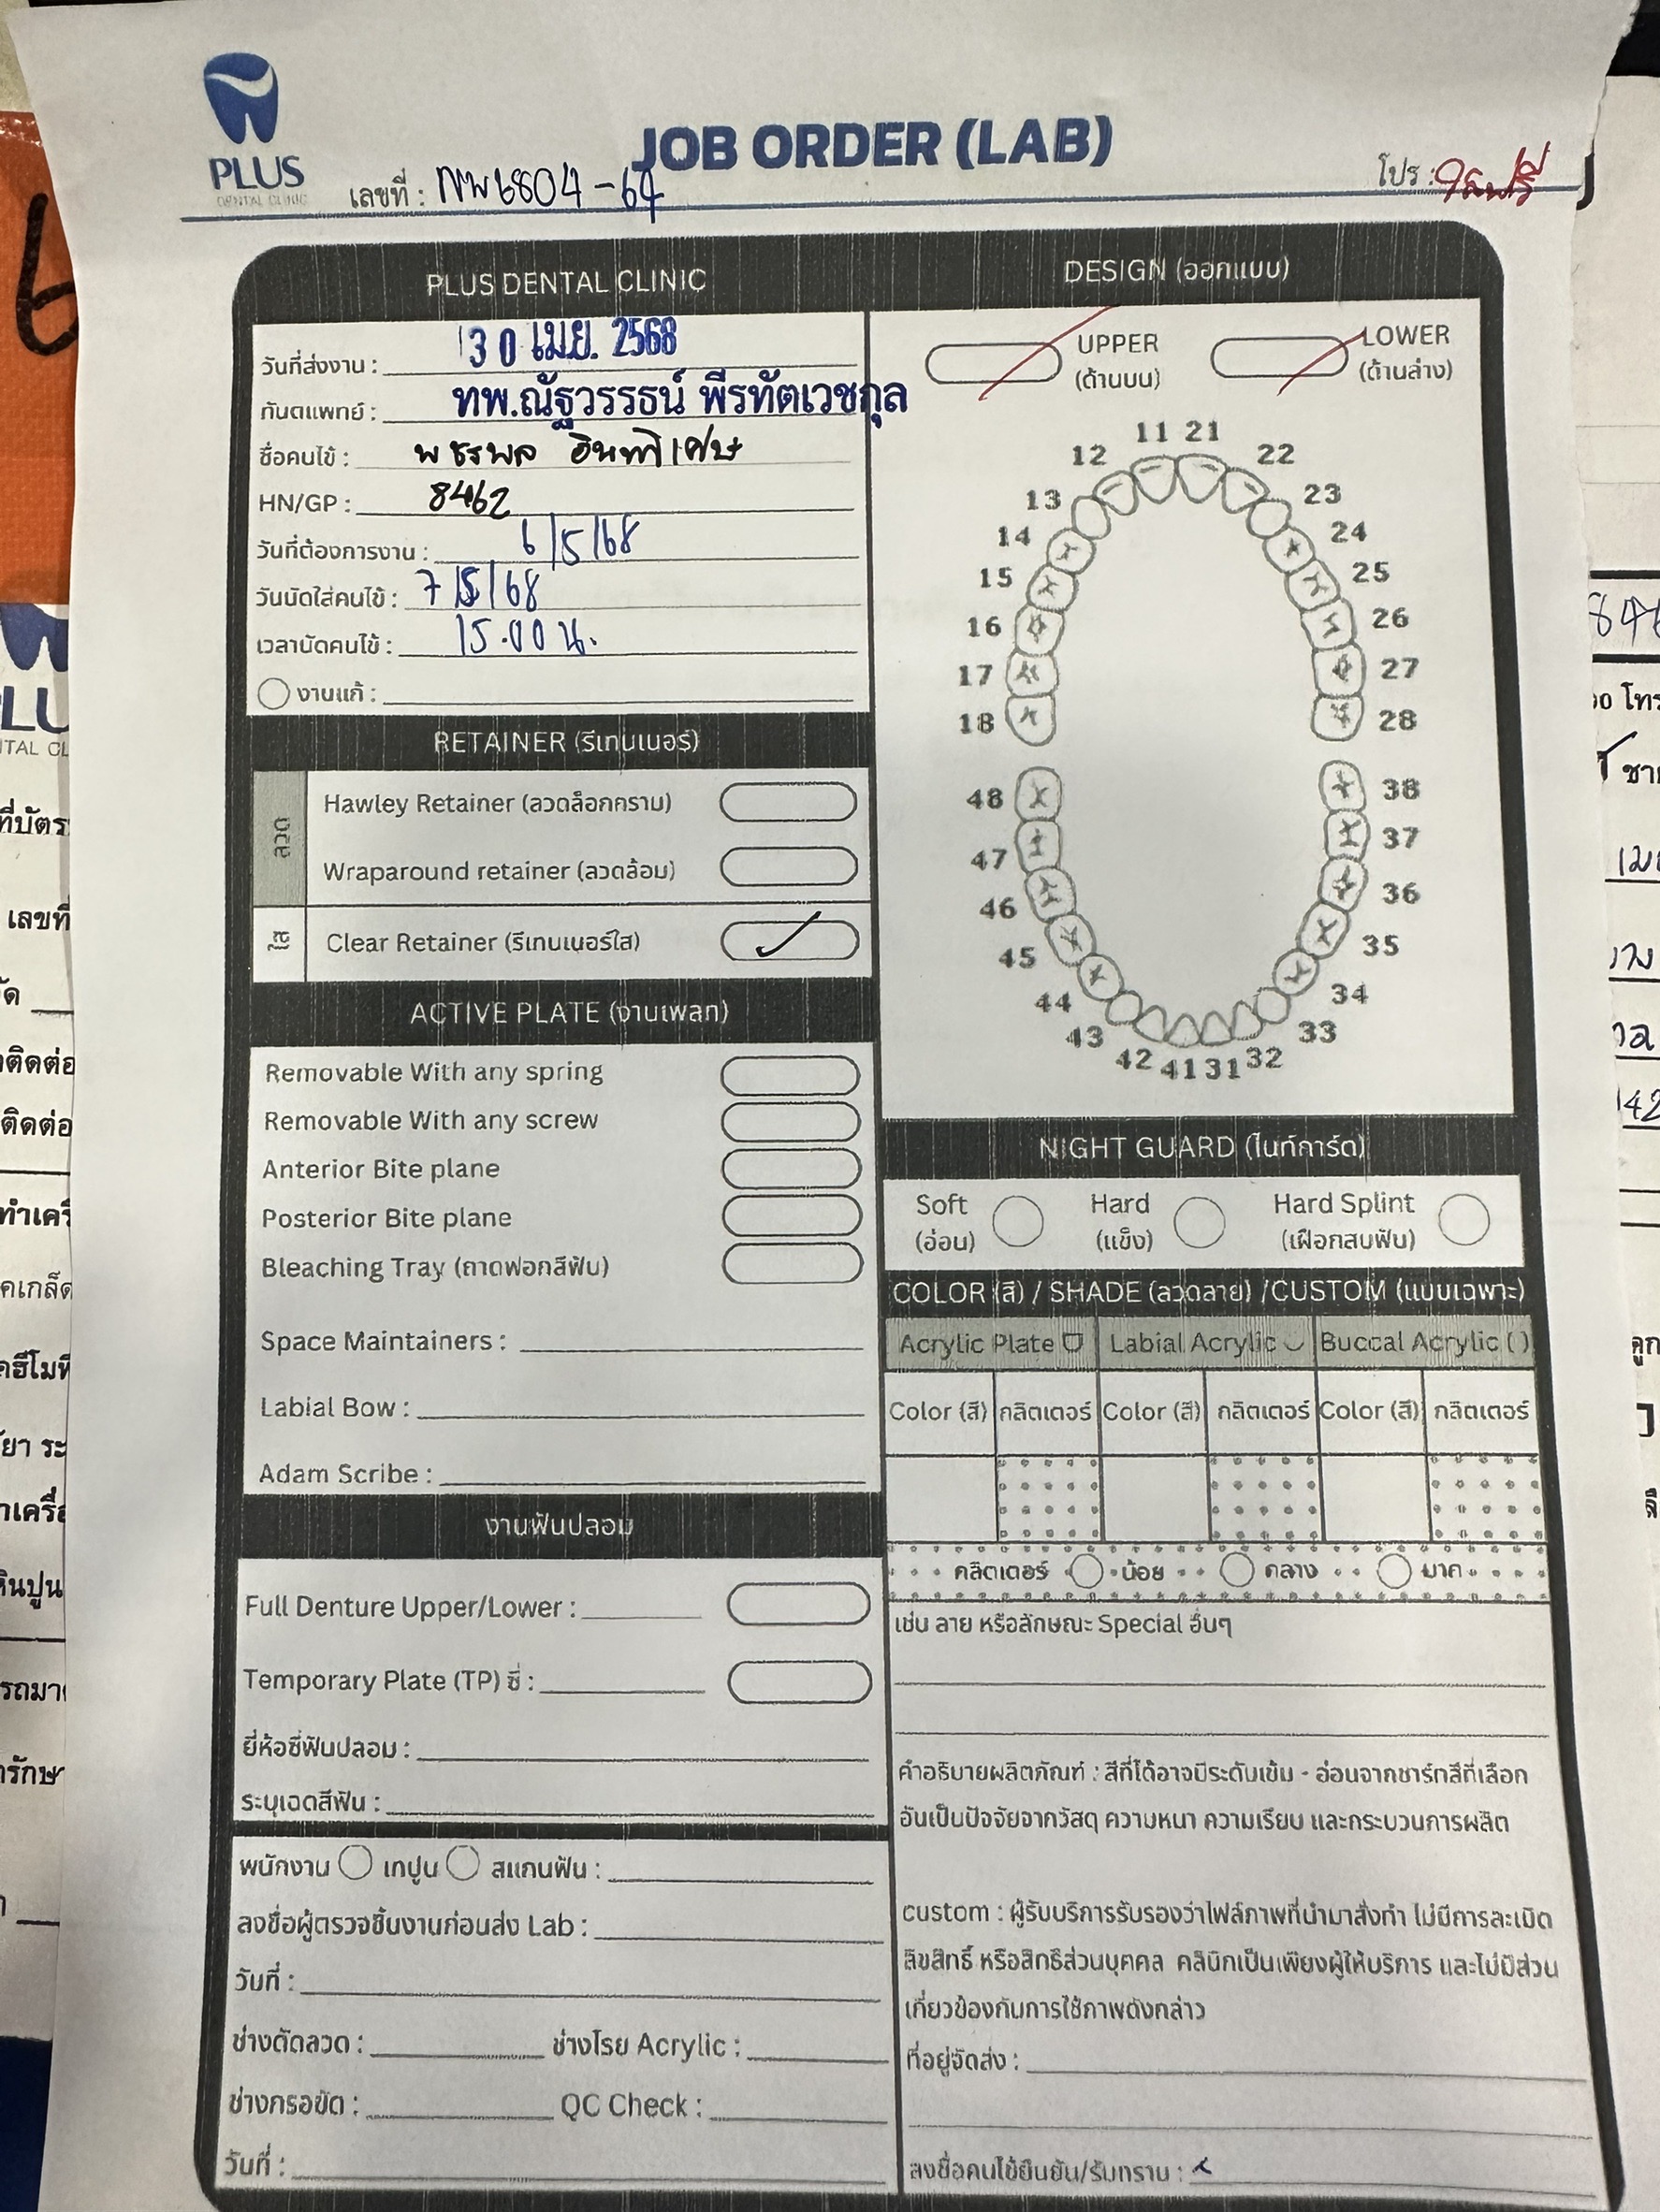 PLUS
DENTAL CLINIC
JOB ORDER (LAB)
เลขที่ : NW6804-64
โปร :
PLUS DENTAL CLINIC
วันที่ส่งงาน : 30 เม.ย. 2568
ทันตแพทย์ : ทพ.ณัฐวรรธน์ พีรทัตเวชกุล
ชื่อคนไข้ : พชรพล อินทาิเศษ
HN/GP : 8462
วันที่ต้องการงาน : 6/5/68
วันนัดใส่คนไข้ : 7/5/68
เวลานัดคนไข้ : 15.00 น.
งานแก้ :
RETAINER (รีเทนเนอร์)
ลวด
Hawley Retainer (ลวดล็อกคราม)
Wraparound retainer (ลวดล้อม)
ใส
Clear Retainer (รีเทนเนอร์ใส)
ACTIVE PLATE (งานเพลท)
Removable With any spring
Removable With any screw
Anterior Bite plane
Posterior Bite plane
Bleaching Tray (ถาดฟอกสีฟัน)
Space Maintainers :
Labial Bow :
Adam Scribe :
งานฟันปลอม
Full Denture Upper/Lower :
Temporary Plate (TP) ซี่ :
ยี่ห้อซี่ฟันปลอม :
ระบุเฉดสีฟัน :
พนักงาน เทปูน สแกนฟัน :
ลงชื่อผู้ตรวจชิ้นงานก่อนส่ง Lab :
วันที่ :
ช่างดัดลวด : ช่างโรย Acrylic :
ช่างกรอขัด : QC Check :
วันที่ :
DESIGN (ออกแบบ)
UPPER LOWER
(ด้านบน) (ด้านล่าง)
11 21
12 22
13 23
14 24
15 25
16 26
17 27
18 28
48 38
47 37
46 36
45 35
44 34
43 33
42 41 31 32
NIGHT GUARD (ไนท์การ์ด)
Soft Hard Hard Splint
(อ่อน) (แข็ง) (เฝือกสบฟัน)
COLOR (สี) / SHADE (ลวดลาย) /CUSTOM (แบบเฉพาะ)
Acrylic Plate Labial Acrylic Buccal Acrylic ( )
Color (สี) กลิตเตอร์ Color (สี) กลิตเตอร์ Color (สี) กลิตเตอร์
คลิตเตอร์ น้อย กลาง มาก
เช่น ลาย หรือลักษณะ Special อื่นๆ
คำอธิบายผลิตภัณฑ์ : สีที่ได้อาจมีระดับเข้ม - อ่อนจากชาร์ทสีที่เลือก
อันเป็นปัจจัยจากวัสดุ ความหนา ความเรียบ และกระบวนการผลิต
custom : ผู้รับบริการรับรองว่าไฟล์ภาพที่นำมาสั่งทำ ไม่มีการละเมิด
ลิขสิทธิ์ หรือสิทธิส่วนบุคคล คลินิกเป็นเพียงผู้ให้บริการ และไม่มีส่วน
เกี่ยวข้องกับการใช้ภาพดังกล่าว
ที่อยู่จัดส่ง :
ลงชื่อคนไข้ยืนยัน/รับทราบ :